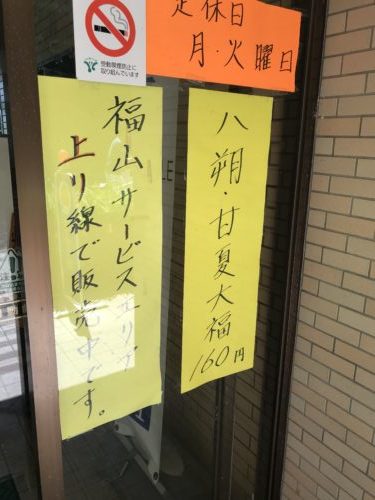 定休日
月・火曜日
受動喫煙防止に
取り組んでいます
八朔・甘夏大福
160円
福山サービスエリア
上り線で販売中です。